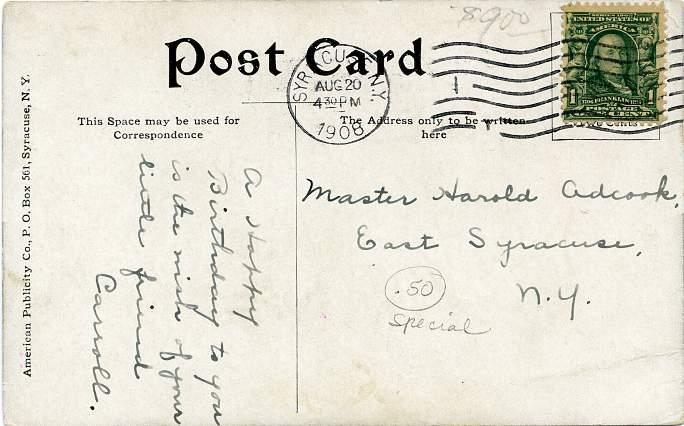 $9.00
Post Card
SYRACUSE, N.Y.
AUG 20
4 30 PM
1908
UNITED STATES OF
AMERICA
1706 FRANKLIN 1790
1 1
POSTAGE
ONE CENT
Two Cents
This Space may be used for
Correspondence
The Address only to be written
here
American Publicity Co., P. O. Box 561, Syracuse, N. Y.
A Happy
Birthday to you
is the wish of your
little friend
Carroll.
Master Harold Adcook,
East Syracuse,
N.Y.
.50
Special